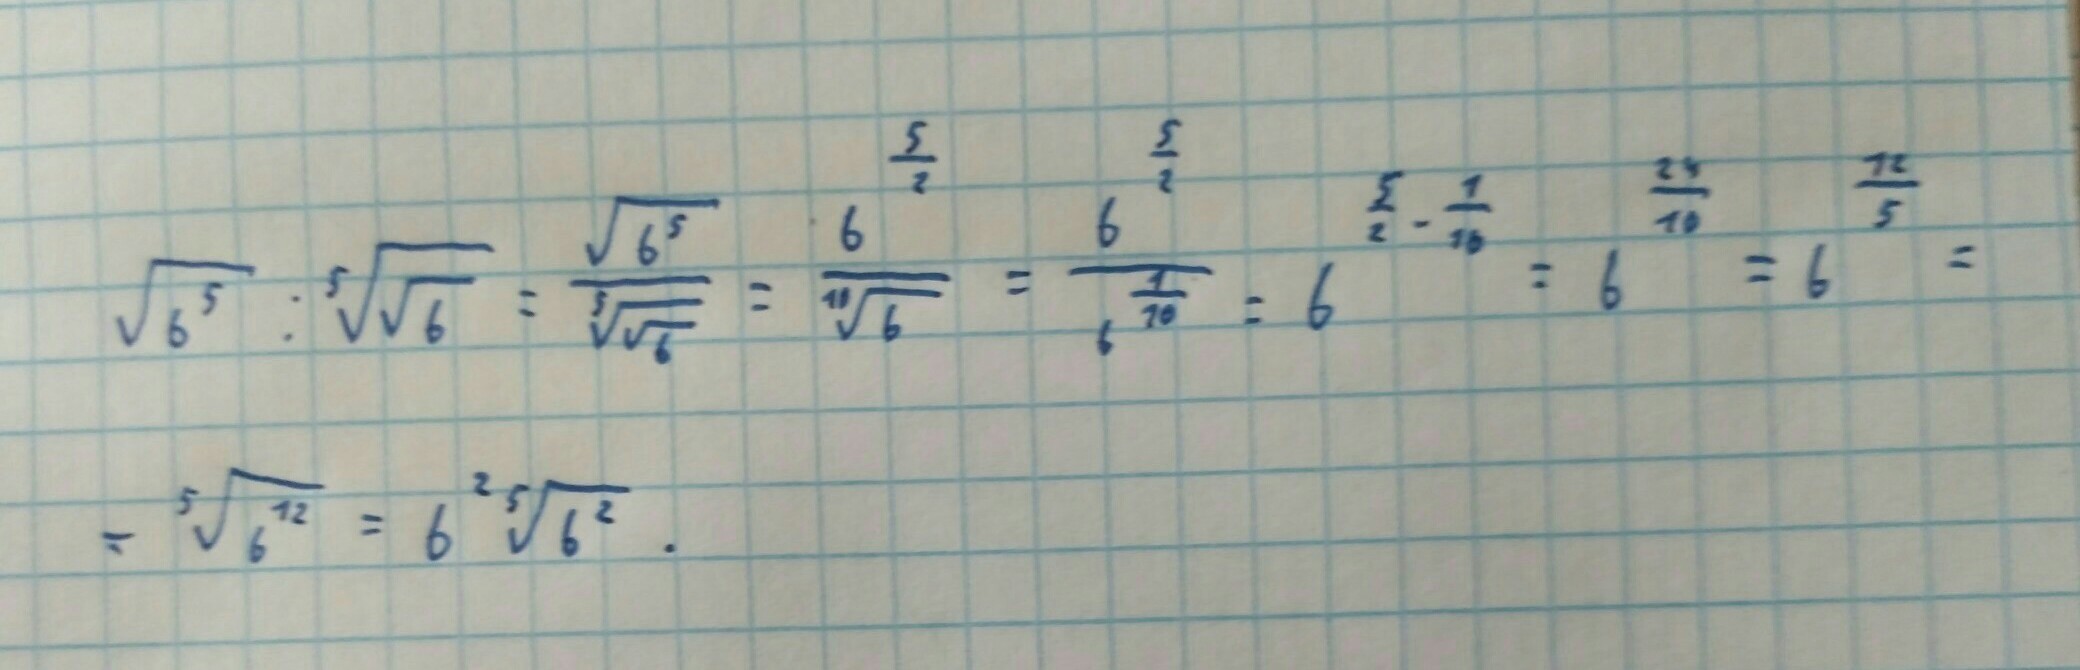 √(6⁵) : ⁵√(√6) = √(6⁵) / ⁵√(√6) = 6^(5/2) / ¹⁰√6 = 6^(5/2) / 6^(1/10) = 6^(5/2 - 1/10) = 6^(24/10) = 6^(12/5) =
= ⁵√(6¹²) = 6² ⁵√(6²) .